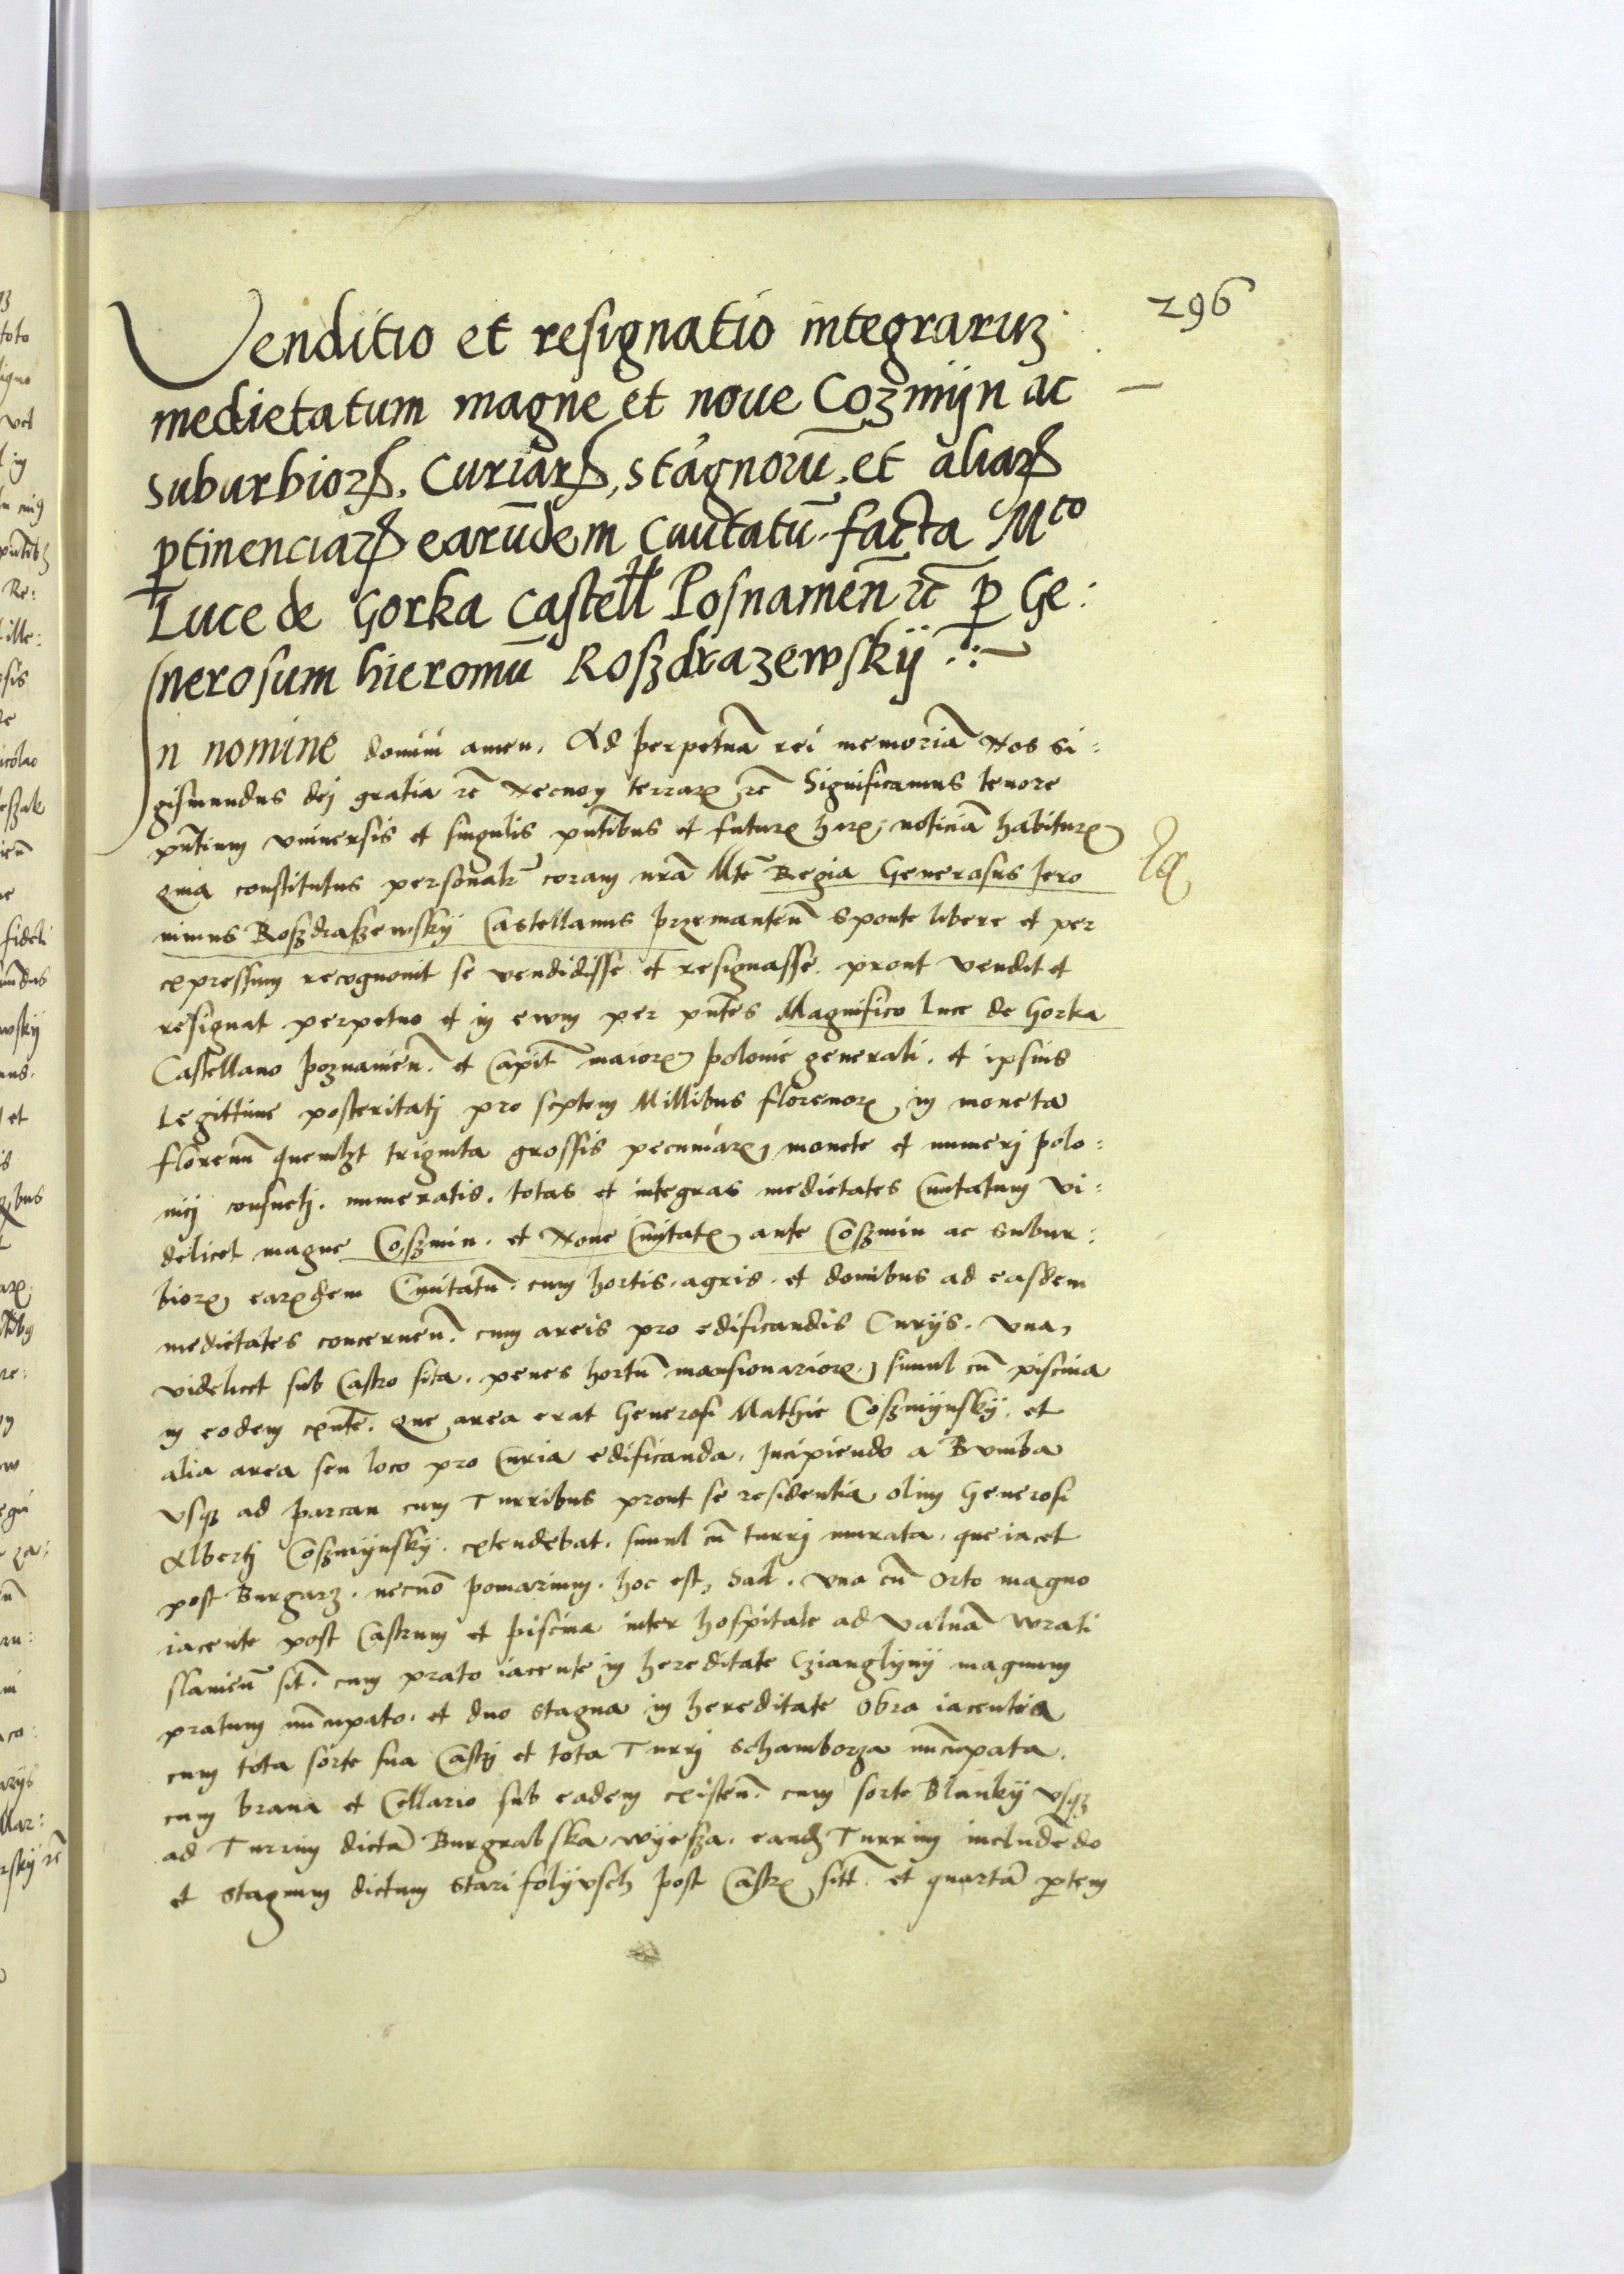 296
Venditio et resignatio integraruʒ
medietatum magne et noue Coʒmijn ac
suburbioꝝ. Curiaꝝ, stagnorū. et aliaꝝ
ꝑtinenciaꝝ earūdem Ciuitatū. facta Mco
Luce de Gorka Castell Posnamen̄ ꝛc̄ ꝑ Ge:
nerosum hieromū Rosʒdraʒewskij
In nomine domini amen. Ad perpetuā rei memoriā Nos Si:
gismundus dej gratia ꝛc̄ Necnoŋ terraꝝ ꝛc̄ Significamus tenore
pn̄tium vniuersis et singulis pn̄tibus et futuꝝ haꝝ noticiā habituꝝ
Quia constitutus personalr̄ coram nr̄a Mte Regia Generosus Jero
nimus Rosʒdrasʒewskij Castellanus przemanten̄ sponte libere et per
expressum recognouit se vendidisse et resignasse. prout vendit et
resignat perpetuo et in ewm per pn̄tes Magnifico Luce de Gorka
Castellano poznanien̄. et Capit̄ maioꝝ polonie generali. et ipsius
Legittime posteritatj pro septem Millibus florenoꝝ in moneta
florenū quemlʒt triginta grossis pecuniaꝝ monete et numerj polo:
nicj consuetj. numeratis. totas et integras medietates Ciuitatum vi:
delicet magne Cosʒmin. et Noue Ciuitatꝭ ante Cosʒmin ac subur:
bioꝝ eaꝝdem Ciuitatū. cum hortis. agris. et domibus ad easdem
medietates concernen̄. cum areis pro edificandis Curijs. vna,
videlicet sub Castro sita. penes hortū mansionarioꝝ, simul cū piscina
in eodem exn̄te. Que area erat Generosi Mathie Cosʒmijnskij. et
alia area seu loco pro Curia edificanda. Incipiendo a Bumba
vsqʒ ad parcan cum Turribus prout se residentia olim Generosi
Albertj Cosʒmijnskij. extendebat. simul cū turrj murata. que iacet
post Burgarʒ. necnō pomarium. hoc est, Sad. vna cū Orto magno
iacente post Castrum et piscina inter hospitale ad valuā wrati
slauien̄ sit̄. cum prato iacente in hereditate Czianglijnij magnum
pratum nūcupato. et duo stagna in hereditate Obra iacentia
cum tota sorte sua Castrj et tota Turrj Schamborza nūcupata.
cum brana et Cellario sub eadem existen̄. cum sorte Blankij vsqʒ
ad Turrim dictā Burgrabska wijesza. eandʒ Turrim includēdo
et stagnum dictum stari folijvsch post Castꝝ sitt̄. et quartā ꝑtem